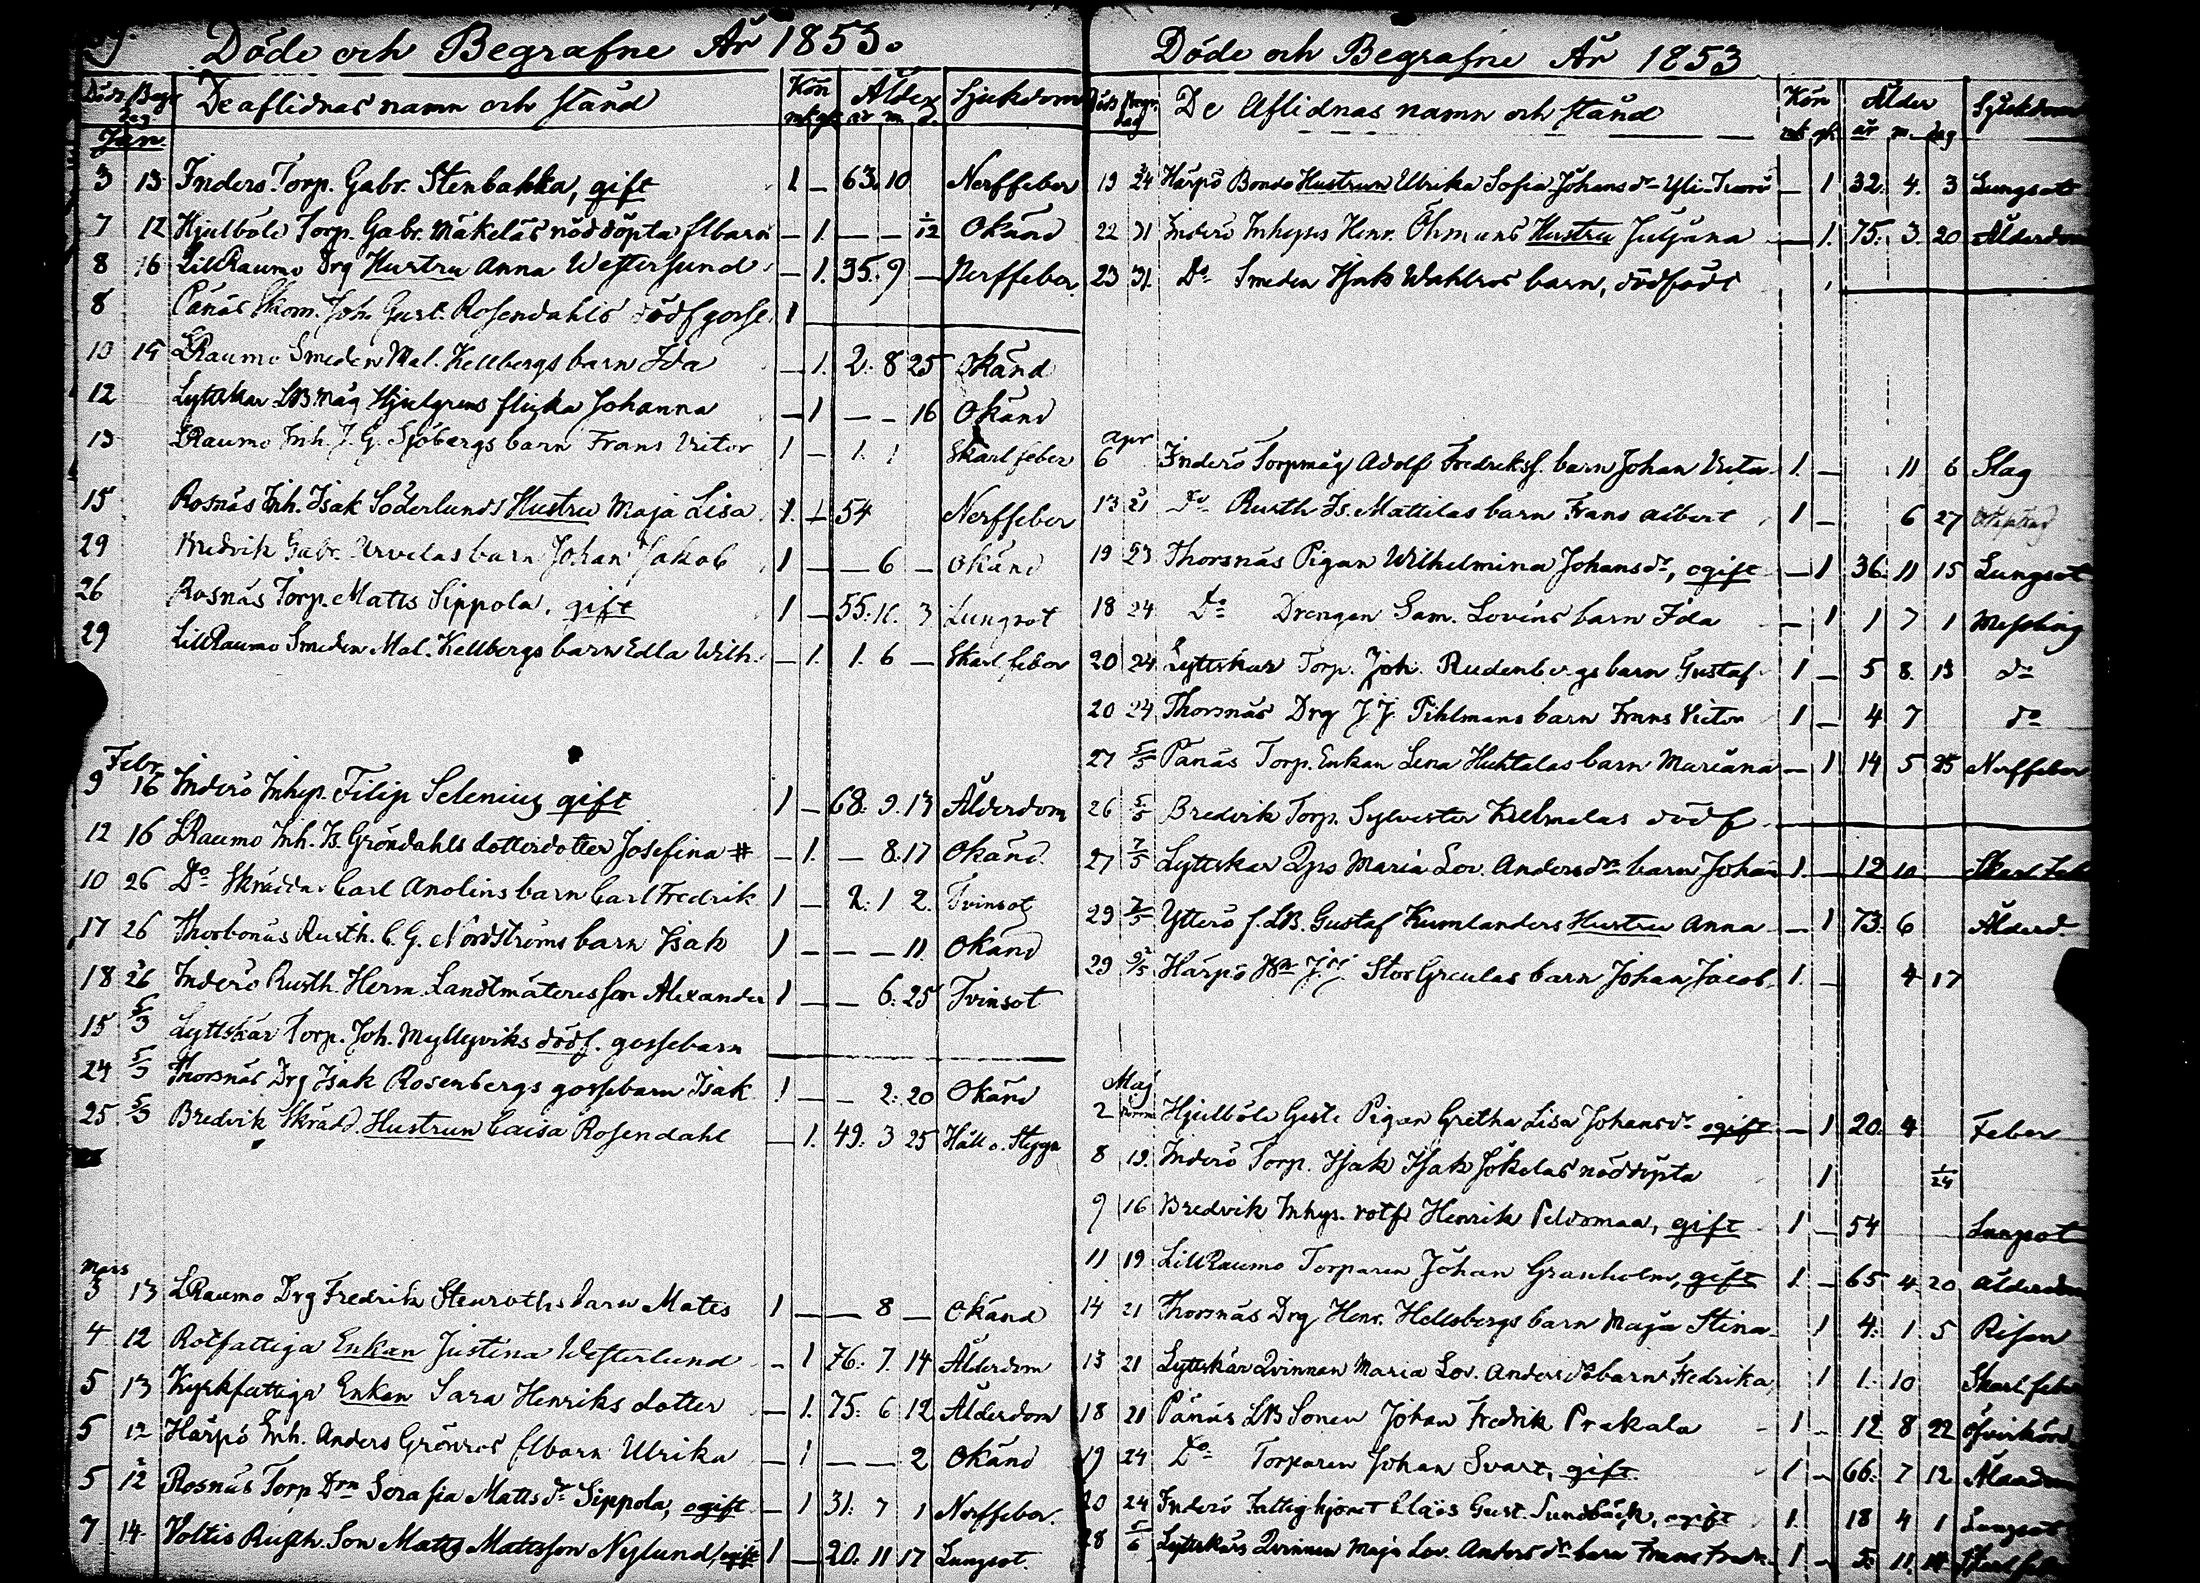 Döde och Begrafne År 1853.
Döds Begr dag De aflidnas namn och stånd Kön mk qk Ålder år m. d. Sjukdom
Jan.
3 13 Inderö Torp. Gabr. Stenbakka, gift 1 — 63. 10 Nerffeber
7 12 Hjulböle Torp. Gabr. Mäkeläs nöddöpta flbarn — 1. — — 1/12 Okänd
8 16 LillRaumo Drg Hustru Anna Westersund — 1. 35. 9 — Nerffeber
8 Pänäs Skom. Joh. Gust. Rosendahls dödf gosse 1
10 15 LRaumo Smeden Mal. Kellbergs barn Ida — 1. 2. 8 25 Okänd
12 Lyttskär LBMåg Hjulgrens flicka Johanna — 1 — — 16 Okänd
13 LRaumo Inh. J. G. Sjöbergs barn Frans Victor 1 — 1. 1 Skarlfeber
15 Rosnäs Inh. Isak Söderlunds Hustru Maja Lisa 1. 54 Nerffeber
29 Bredvik Gabr. Urvelas barn Johan Jakob 1 — — 6 — Okänd
26 Rosnäs Torp. Matts Sippola, gift 1 — 55. 11. 3 Lungsot
29 LillRaumo Smeden Mal. Kellbergs barn Edla Wilh. — 1. 1. 6 — Skarlfeber
Febr.
9 16 Inderö Inhys. Filip Selenius gift 1 — 68. 9. 13 Ålderdom
12 16 LRaumo Inh. Is. Gröndahls dotterdotter Josefina # — 1. — 8. 17 Okänd
10 26 Do Skräddar Carl Anolins barn Carl Fredrik 1 — 2. 1 2. Tvinsot
17 26 Thorbonäs Rusth. C. G. Nordströms barn Isak 1 — — — 11. Okänd
18 26 Inderö Rusth. Herm. Landtmäteres son Alexander 1 — — 6. 25 Tvinsot
15 5/3 Lyttskär Torp. Joh. Myllyviks dödf. gossebarn
24 5/3 Thorsnäs Drg Isak Rosenbergs gossebarn Isak 1 — — 2. 20 Okänd
25 5/3 Bredvik Skrädd. Hustrun Caisa Rosendahl — 1. 49. 3 25 Håll o. Stygn
Mars
3 13 LRaumo Drg Fredrik Stenroths barn Matts 1 — — 8 — Okänd
4 12 Rotfattiga Enkan Justina Westerlund — 1 76. 7. 14 Ålderdom
5 13 Kyrkfattiga Enkan Sara Henriks dotter — 1. 75. 6 12 Ålderdom
5 12 Härpö Inh. Anders Grönros flbarn Ulrika — 1 — — 2 Okänd
5 12 Rosnäs Torp Drn Serafia Matts dr Sippola, ogift — 1 31. 7 1 Nerffeber.
7 14 Voltis Rusth. Son Matts Mattsson Nylund, ogift 1 — 20. 11 17 Lungsot.
Döde och Begrafne År 1853
Döds Begr. dag De Aflidnas namn och stånd Kön mk qk Ålder år m. dag Sjukdom
19 24 Härpö Bonde Hustrun Ulrika Sofia Johans dr — 1 32. 4. 3 Lungsot
22 31 Inderö Inhyses Henr. Öhmans Hustru Juljana — 1. 75. 3. 20 Ålderdom
23 31 Do Smeden Isak Wahlros barn, dödfödt
Apr
6 Inderö Torpmåg Adolf Fredriksf. barn Johan Victor 1. — 11 6 Slag
13 21 Do Rusth Is. Mattilas barn Frans Albert 1 — 6 27
19 23 Thorsnäs Pigan Wilhelmina Johansdr, ogift — 1 36 11 15 Lungsot
18 24 Do Drengen Sam. Lovéns barn Ida — 1 1 7 1 Messling
20 24 Lyttskär Torp. Joh. Rudenbergs barn Gustaf 1 — 5 8. 13 do
20 24 Thorsnäs Drg J. J. Pihlmans barn Frans Victor 1 — 4 7 do
27 5/5 Pänäs Torp. Enkan Lena Huhtalas barn Mariana — 1 14 5 25 Nerffeber
26 5/5 Bredvik Torp. Sylvester dödf
27 7/5 Lyttskär Qps Maria Lov. Andersdr barn Johan 1. — 12 10 Skarl. Feb
29 7/5 Ytterö f. LB. Gustaf Kumlanders Hustru Anna — 1 73. 6 Ålderd.
29 9/5 Härpö Bn StorGreulas barn Johan Jacob. 1. — 4 17
Maj
2 Hjulböle Gestg Pigan Gretha Lisa Johansdr ogift — 1 20. 4 Feber
8 19. Inderö Torp. Isak Isak Jokelas nöddöpta 1 1/24
9 16 Bredvik Inhys. rotf Henrik Peldomaa, gift 1 — 54 Lungsot
11 19 LillRaumo Torparen Johan Granholm, gift 1. — 65 4 20 Ålderdom
14 21 Thorsnäs Drg Henr. Hellsbergs barn Maja Stina 1 4. 1 5 Risen
13 21 Lyttskär Qvinnan Maria Lov. Anders dr barn Fredrika 1 1. 10 Skarlfeber
18 21 Pänäs LB Sonen Johan Fredrik Prakala 1 — 12 8 22
19 24 Do Torparen Johan Svart, gift. 1 — 66. 7 12 Ålderdom
20 24 Inderö Fattighjonet Elias Gust. Sundbäck, ogift 1. 18 4 1 Lungsot
28 5/6 Lyttskärs Qvinnan Maja Lov. Anders dr barn Frans Fredr. 1 — 5. 11. 14 Skarlfeb